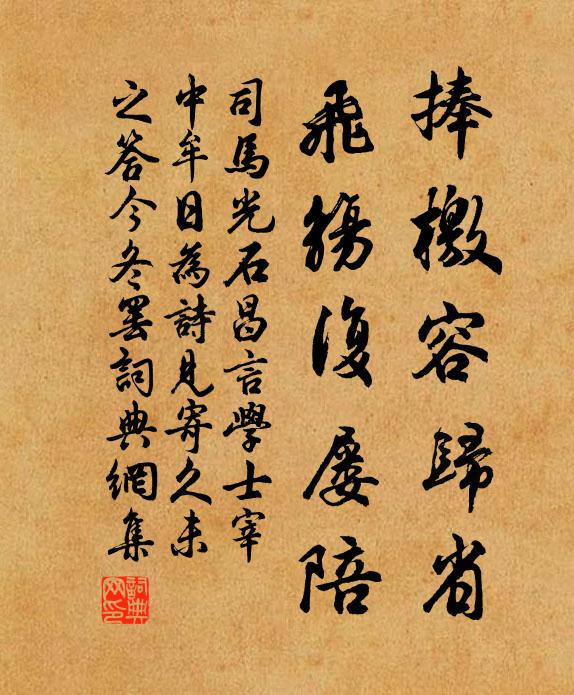 捧檄容歸省
飛觴復屢陪
司馬光石昌言學士宰
中牟日為詩見寄久未
之答今冬罢詞典網集
詞典
网印